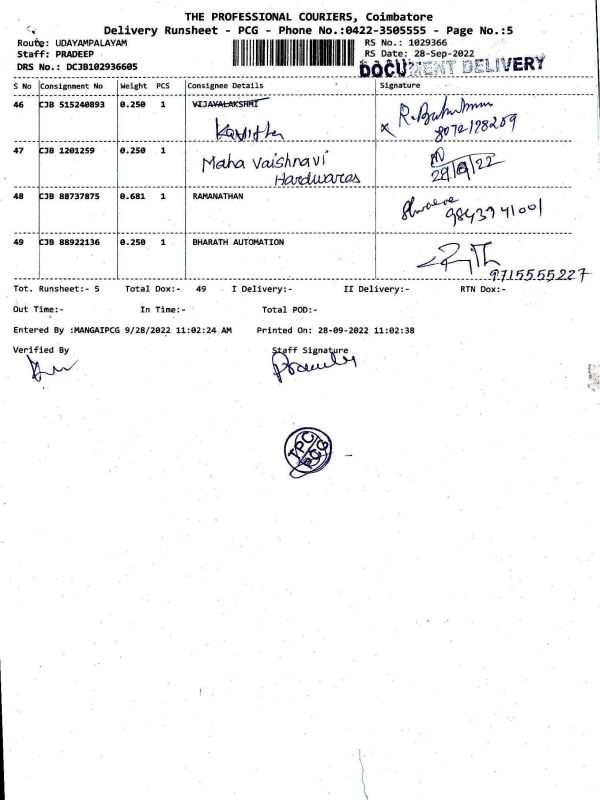 THE PROFESSIONAL COURIERS, Coimbatore
Delivery Runsheet - PCG - Phone No.:0422-3505555 - Page No.:5
Route: UDAYAMPALAYAM RS No.: 1029366
Staff: PRADEEP RS Date: 28-Sep-2022
DRS No.: DCJB102936605 DOCUMENT DELIVERY
S No Consignment No Weight PCS Consignee Details Signature
46 CJB 515240893 0.250 1 VIJAYALAKSHMI
Kavitha 8072198209
47 CJB 1201259 0.250 1 Maha Vaishnavi
Hardwares 29/9/22
48 CJB 88737875 0.681 1 RAMANATHAN
9843941001
49 CJB 88922136 0.250 1 BHARATH AUTOMATION
9715555227
Tot. Runsheet:- 5 Total Dox:- 49 I Delivery:- II Delivery:- RTN Dox:-
Out Time:- In Time:- Total POD:-
Entered By :MANGAIPCG 9/28/2022 11:02:24 AM Printed On: 28-09-2022 11:02:38
Verified By Staff Signature
TPC
PCG